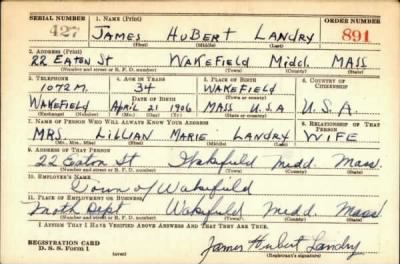 SERIAL NUMBER 1. NAME (Print) ORDER NUMBER
427 JAMES HUBERT LANDRY 891
(First) (Middle) (Last)
2. ADDRESS (Print)
22 EATON ST WAKEFIELD Midd. MASS
(Number and street or R. F. D. number) (Town) (County) (State)
3. TELEPHONE 4. AGE IN YEARS 5. PLACE OF BIRTH 6. COUNTRY OF CITIZENSHIP
1072M. 34 WAKEFIELD
DATE OF BIRTH (Town or county)
WAKEFIELD APRIL 21 1906 MASS U.S.A U.S.A.
(Exchange) (Number) (Mo.) (Day) (Yr.) (State or country)
7. NAME OF PERSON WHO WILL ALWAYS KNOW YOUR ADDRESS 8. RELATIONSHIP OF THAT PERSON
MRS. LILLIAN MARIE LANDRY WIFE
(Mr., Mrs., Miss) (First) (Middle) (Last)
9. ADDRESS OF THAT PERSON
22 Eaton St Wakefield Midd. Mass.
(Number and street or R. F. D. number) (Town) (County) (State)
10. EMPLOYER'S NAME
Town of Wakefield
11. PLACE OF EMPLOYMENT OR BUSINESS
Moth Dept Wakefield Midd. Mass
(Number and street or R. F. D. number) (Town) (County) (State)
I AFFIRM THAT I HAVE VERIFIED ABOVE ANSWERS AND THAT THEY ARE TRUE.
REGISTRATION CARD
D. S. S. Form 1 (over) James Hubert Landry
(Registrant's signature)